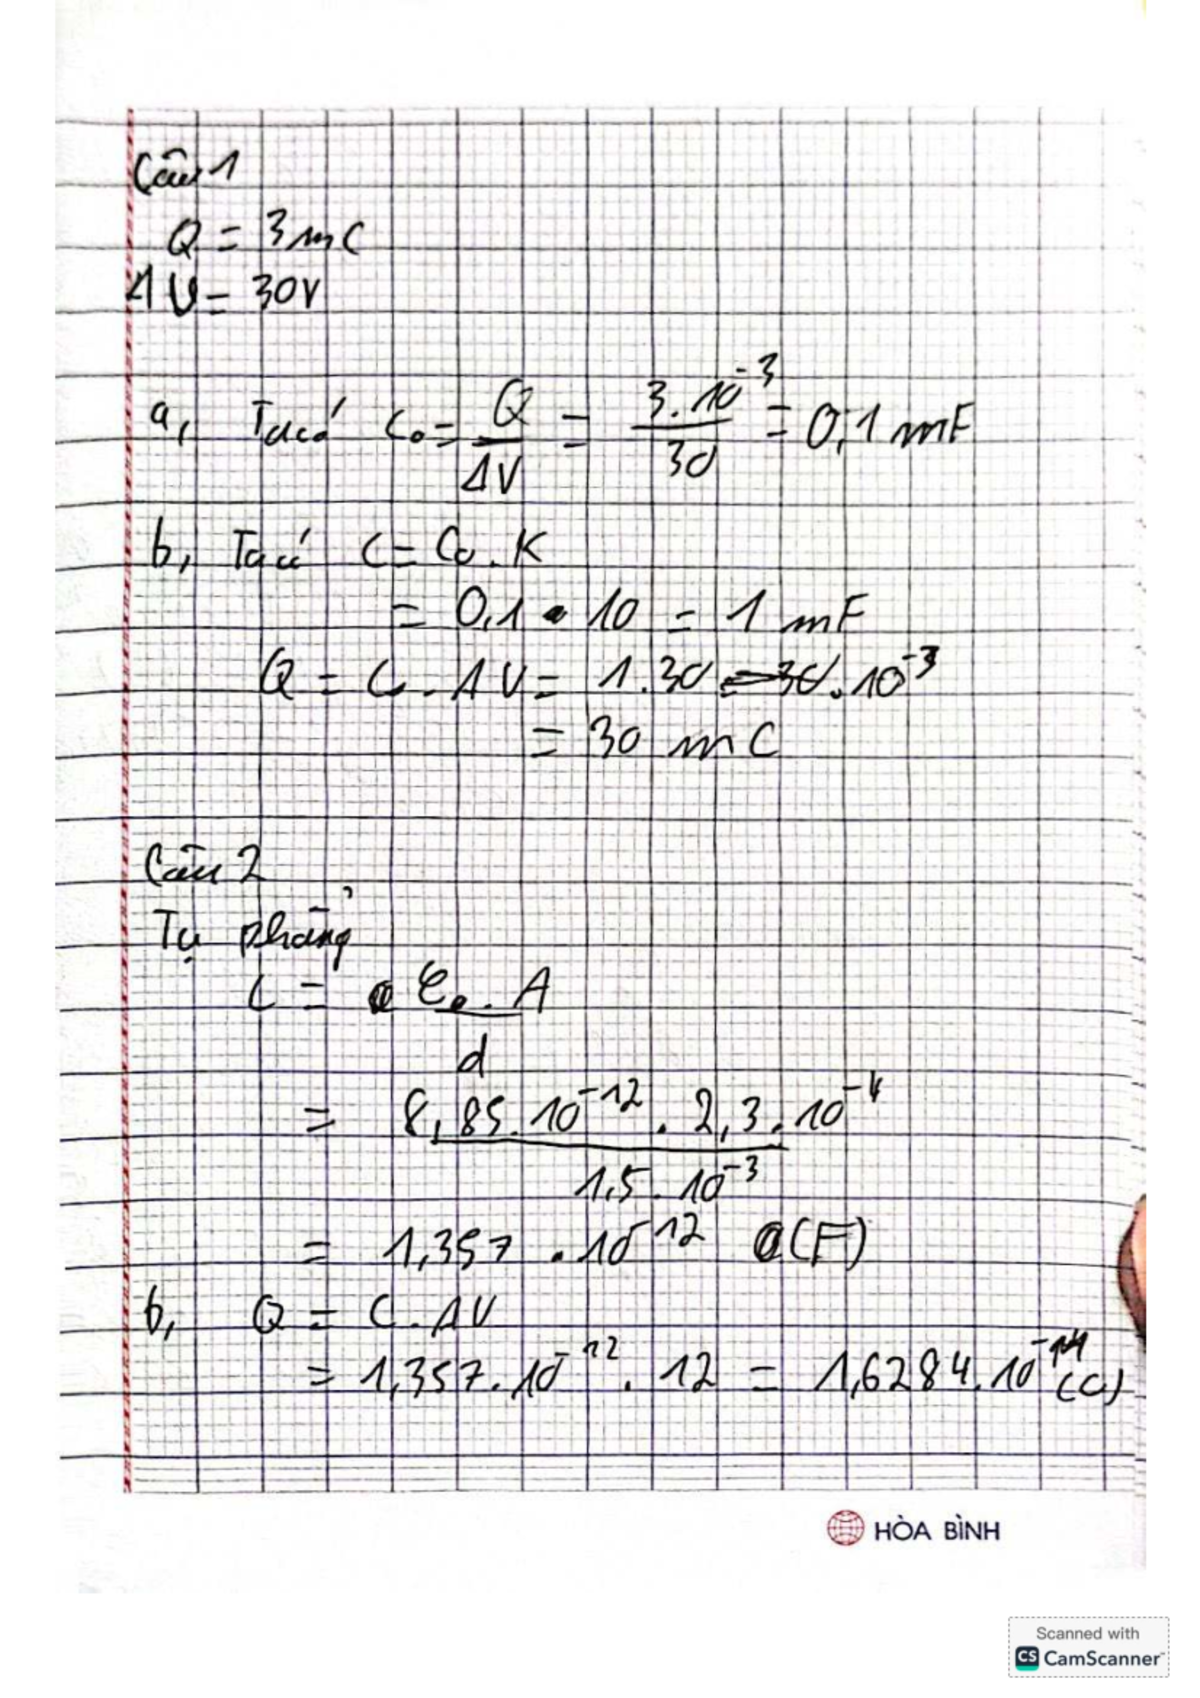 Câu 1
Q = 3mC
ΔV = 30V
a, Ta có C₀ = Q/ΔV = 3.10⁻³/30 = 0,1 mF
b, Ta có C = C₀.K
= 0,1 . 10 = 1 mF
Q = C . ΔV = 1.30 = 30.10⁻³
= 30 mC
Câu 2
Tụ phẳng
C = ε₀.A/d
= 8,85.10⁻¹² . 2,3.10⁻⁴/1,5.10⁻³
= 1,357 .10⁻¹² (F)
b, Q = C.ΔV
= 1,357.10⁻¹² . 12 = 1,6284.10⁻¹¹ (C)
HÒA BÌNH
Scanned with
CS CamScanner